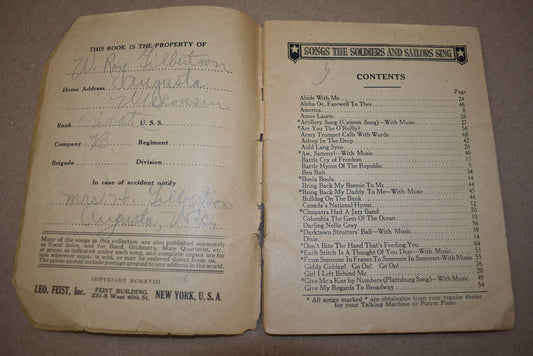 THIS BOOK IS THE PROPERTY OF
W. Roy Gilbertson
Home Address Augusta
Wisconsin
Rank U. S. S.
Company B. Regiment
Brigade Division
In case of accident notify
Mrs. H. Gilbertson
Augusta, Wis.
Many of the songs in this collection are also published separately
as Vocal Solos, and for Band, Orchestra, Male Quartette, etc.,
at prices as indicated under each song, and complete copies are for
sale wherever music is sold, or may be ordered direct from us.
The prices quoted include postage prepaid to any address in the world.
COPYRIGHT MCMXVIII
LEO. FEIST, Inc. FEIST BUILDING
231-5 West 40th St. NEW YORK, U. S. A.
SONGS THE SOLDIERS AND SAILORS SING
CONTENTS
Page
Abide With Me 24
Aloha Oe, Farewell To Thee 48
America 8
Annie Laurie 28
*Artillery Song (Caisson Song)—With Music 37
*Are You The O'Reilly? 58
Army Trumpet Calls With Words 68
Asleep In The Deep 42
Auld Lang Syne 28
*Aw, Sammy!—With Music 40
Battle Cry of Freedom 13
Battle Hymn Of The Republic
Ben Bolt 34
*Boola Boola 44
Bring Back My Bonnie To Me 44
*Bring Back My Daddy To Me—With Music 45
Bulldog On The Bank 44
Canada's National Hymn
*Cleopatra Had A Jazz Band 70
Columbia The Gem Of The Ocean 10
Darling Nellie Gray 31
*Darktown Strutters' Ball—With Music
Dixie
*Don't Bite The Hand That's Feeding You 64
*Each Stitch Is A Thought Of You Dear—With Music 53
*From Someone In France To Someone In Somerset—With Music 55
Giddy Giddap! Go On! Go On! 76
Girl I Left Behind Me 20
*Give Me a Kiss by Numbers (Plattsburg Song)—With Music 49
Give My Regards To Broadway 54
*All songs marked * are obtainable from your regular dealer
for your Talking Machine or Player Piano.